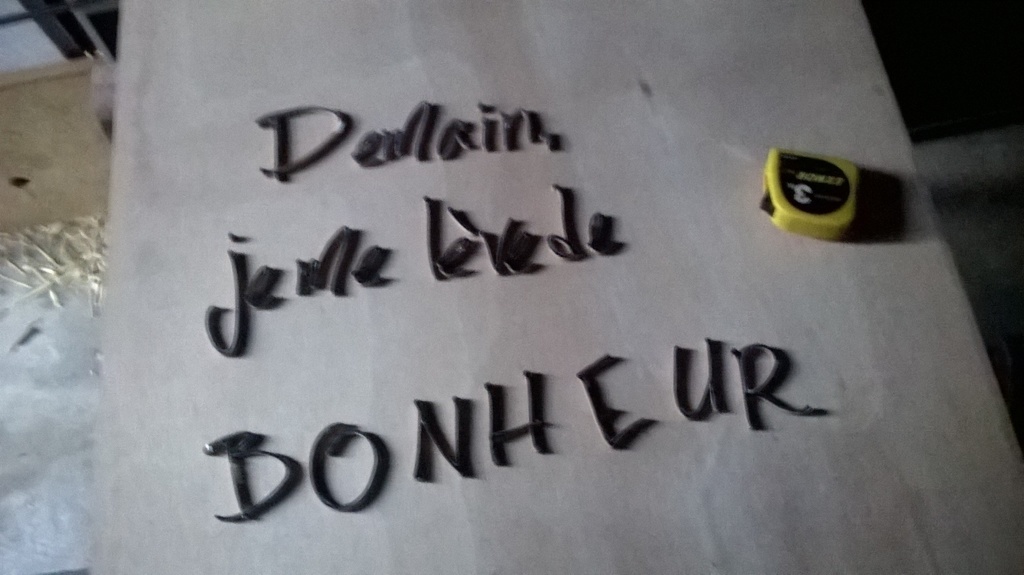 Demain,
je me lève de
BONHEUR
3m